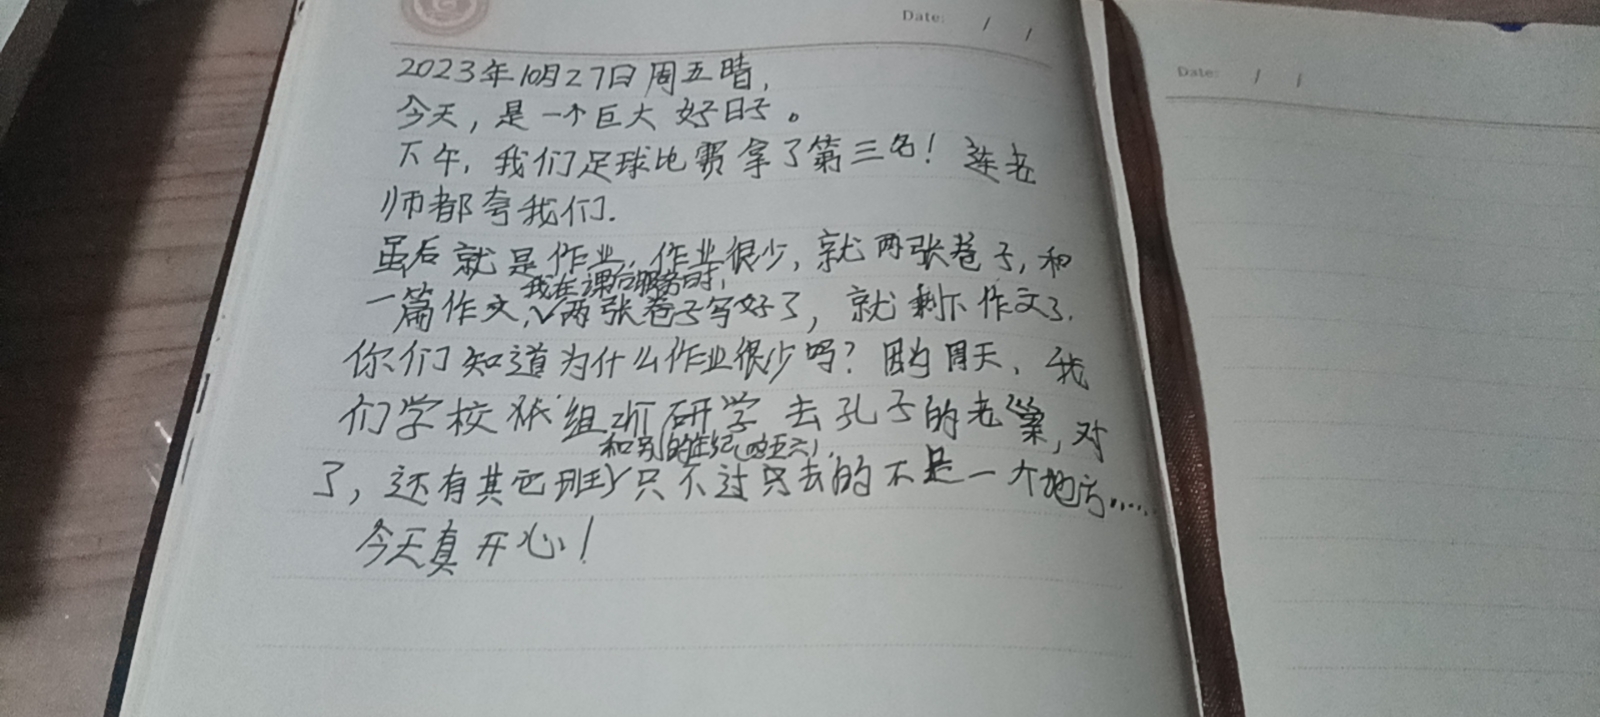 Date: / /
2023年10月27日周五晴,
今天,是一个巨大好日子。
下午,我们足球比赛拿了第三名!连老
师都夸我们.
虽后就是作业,作业很少,就两张卷子,和
我在课后服务时,
一篇作文,两张卷子写好了,就剩下作文了.
你们知道为什么作业很少吗?因为周天,我
们学校组研学去孔子的老巢,对
和别的年纪(四五六),
了,还有其它班只不过去的不是一个地方……
今天真开心!
Date: / /